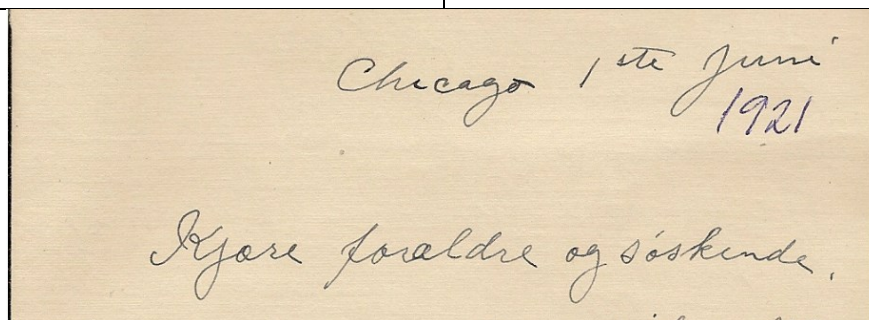 Chicago 1ste Juni
1921
Kjære forældre og søskende.